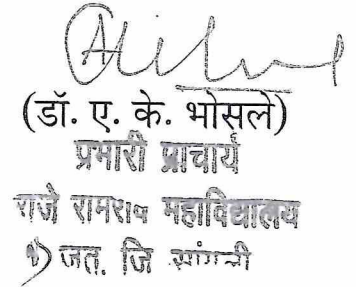 (डॉ. ए. के. भोसले)
प्रभारी प्राचार्य
राजे रामराव महाविद्यालय
जत. जि सांगली